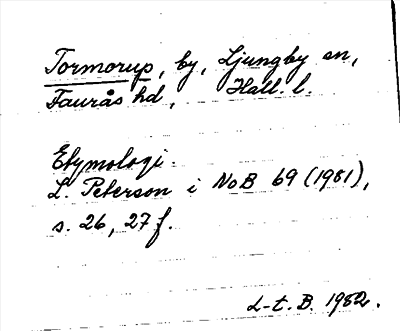 Tormorup, by, Ljungby sn,
Faurås hd, Hall. l.
Etymologi.
L. Peterson i NoB 69 (1981),
s. 26, 27 f.
L-t. B. 1982.